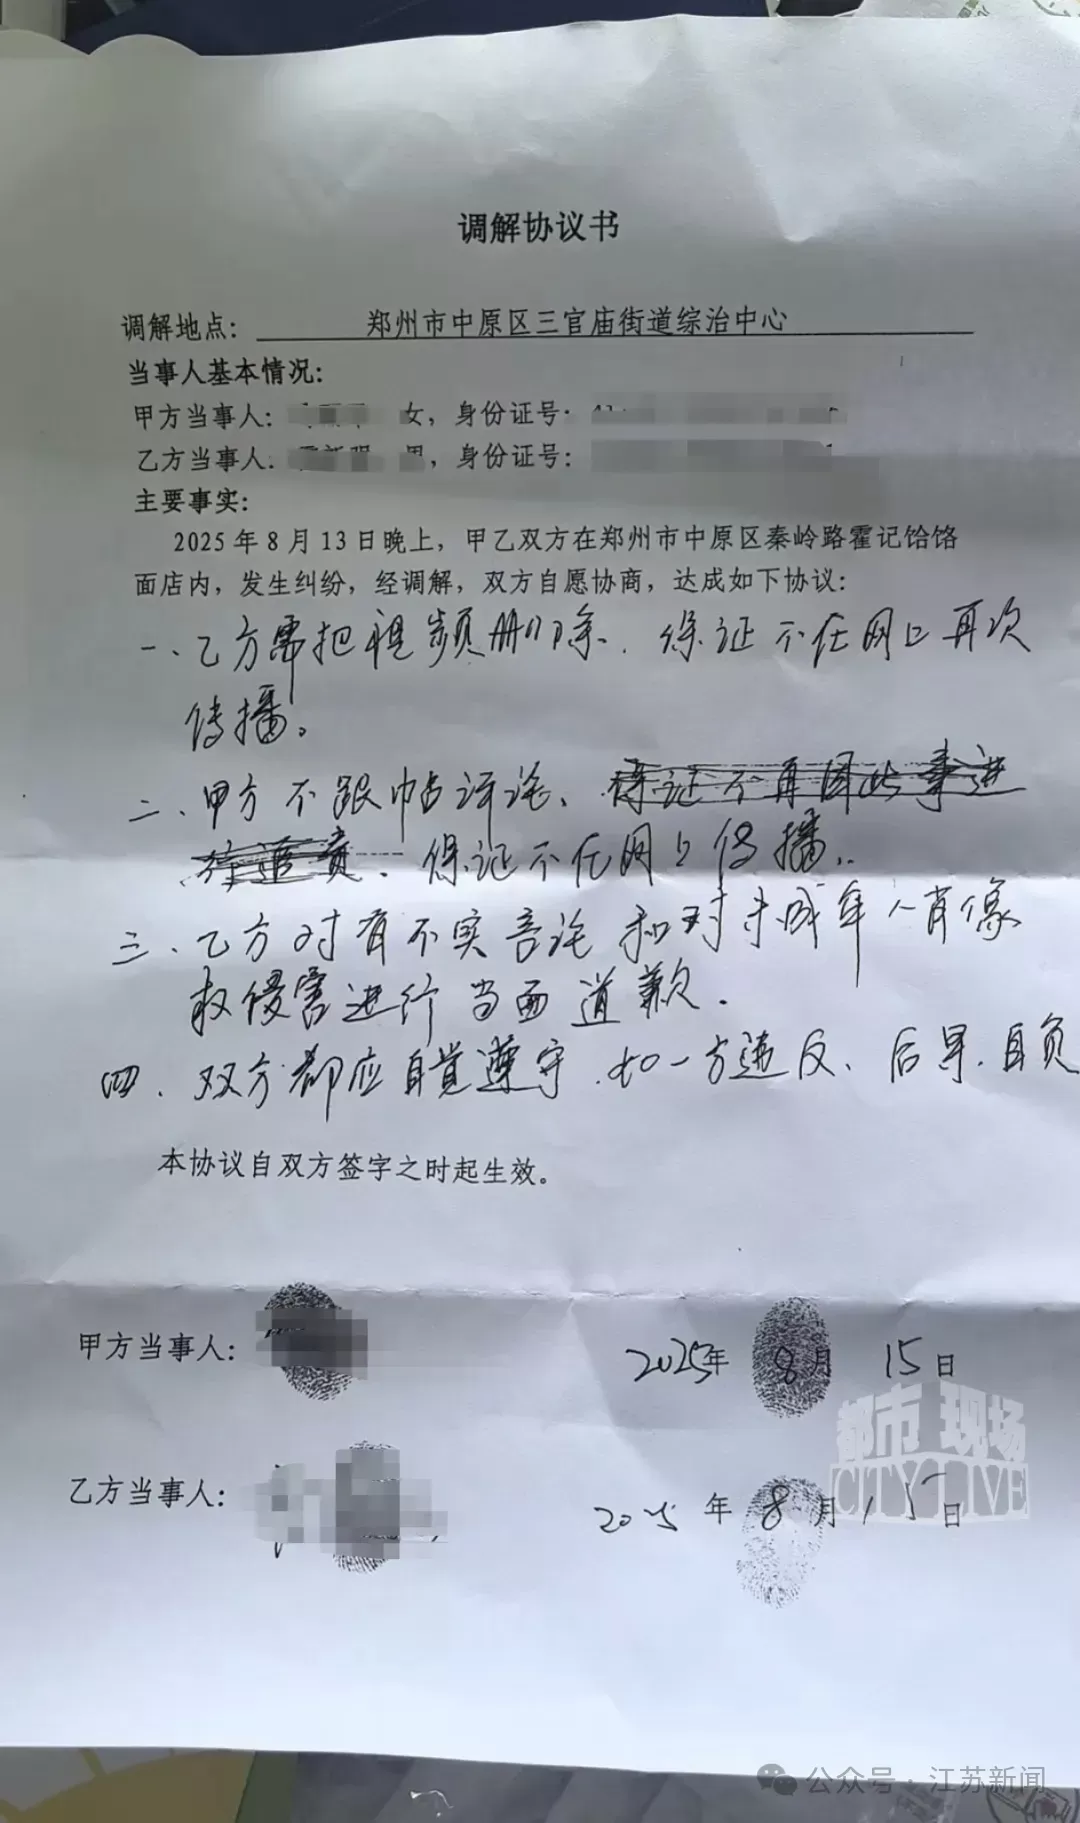 调解协议书
调解地点：郑州市中原区三官庙街道综治中心
当事人基本情况：
甲方当事人： 女，身份证号：
乙方当事人： 男，身份证号：
主要事实：
2025年8月13日晚上，甲乙双方在郑州市中原区秦岭路霍记饸饹
面店内，发生纠纷，经调解，双方自愿协商，达成如下协议：
一、乙方需把视频删除、保证不在网上再次
传播。
二、甲方不跟帖评论、保证不再因此事进
行追责、保证不在网上传播。
三、乙方对有不实言论和对未成年人肖像
权侵害进行当面道歉.
四、双方都应自觉遵守.如一方违反、后果自负
本协议自双方签字之时起生效。
甲方当事人： 2025年8月15日
乙方当事人： 2025年8月15日
都市现场
CITY LIVE
公众号·江苏新闻